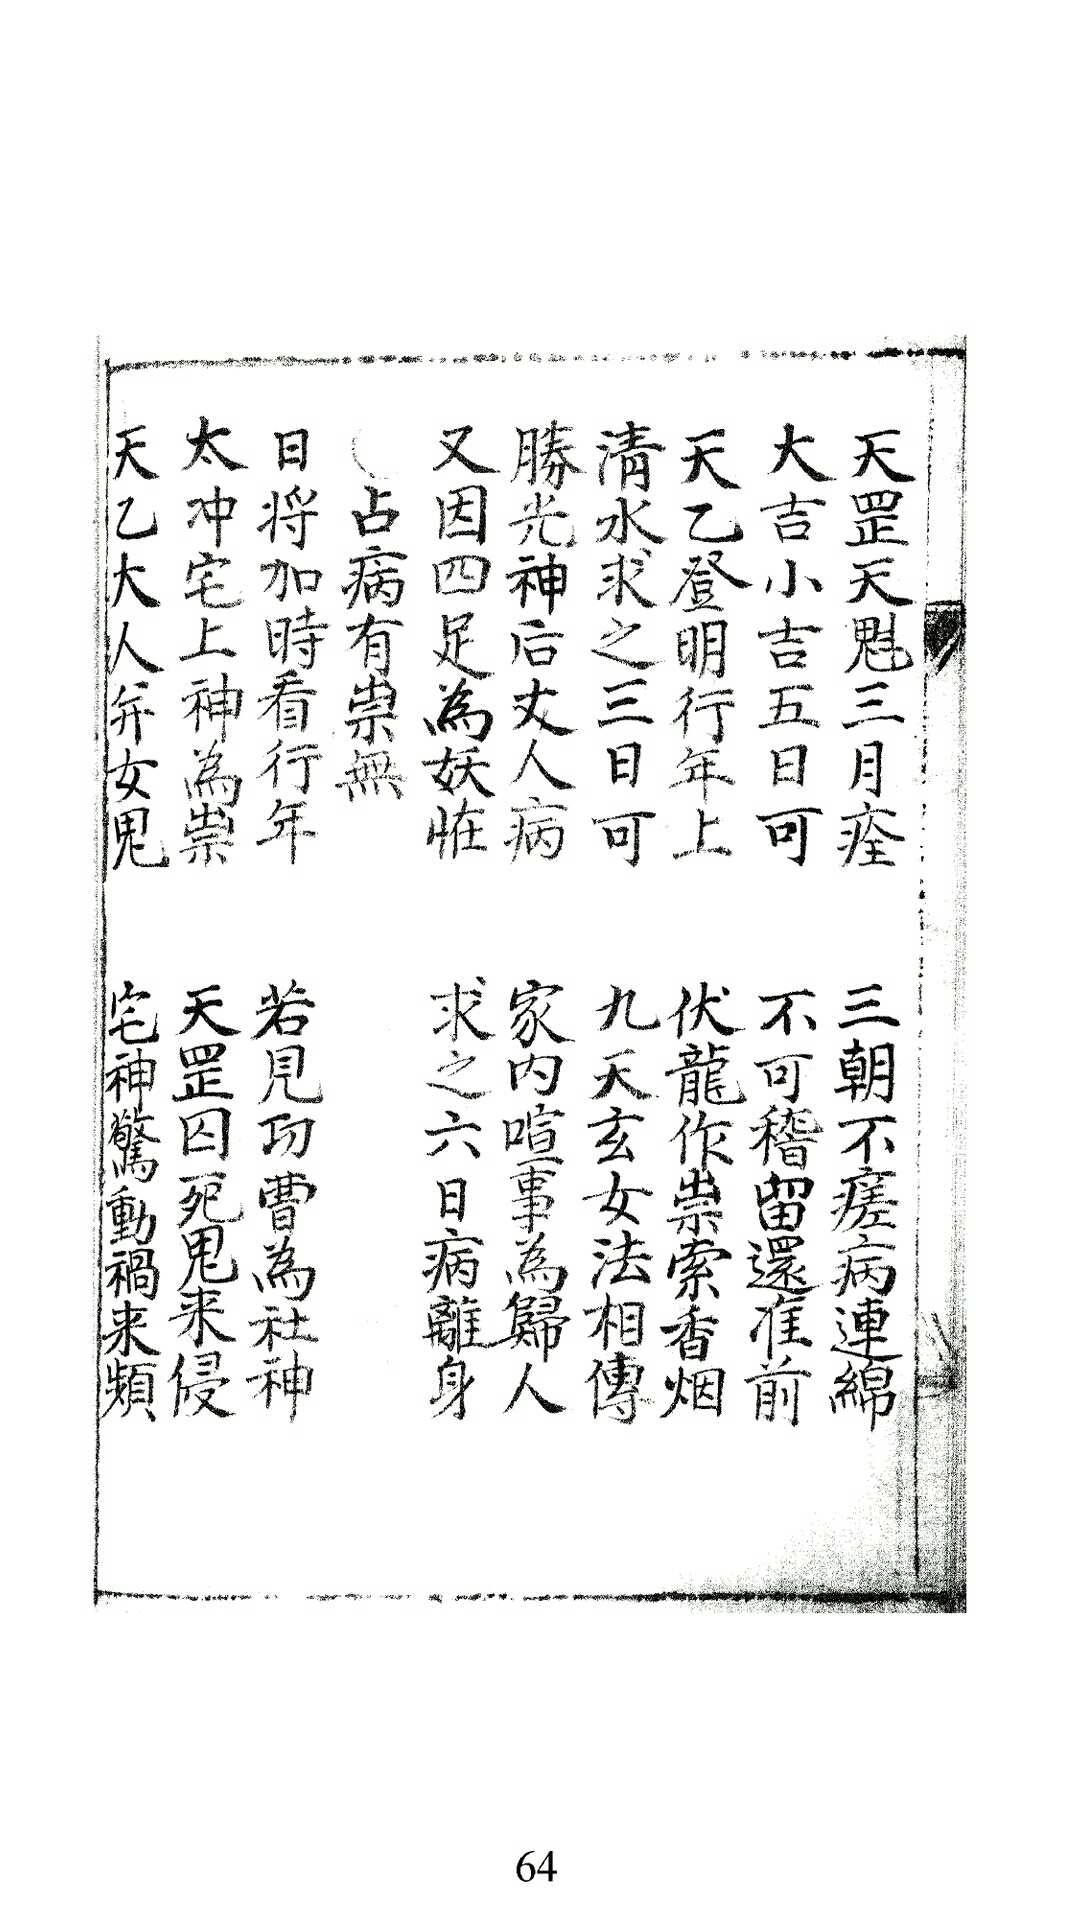 天罡天魁三月痊　三朝不瘥病連綿
大吉小吉五日可　不可稽留還准前
天乙登明行年上　伏龍作祟索香烟
清水求之三日可　九天玄女法相傳
勝光神后丈人病　家内喧事為歸人
又因四足為妖恠　求之六日病離身
占病有祟無
日将加時看行年　若見功曹為社神
太冲宅上神為祟　天罡囚死鬼来侵
天乙大人弁女鬼　宅神驚動禍来頻
64